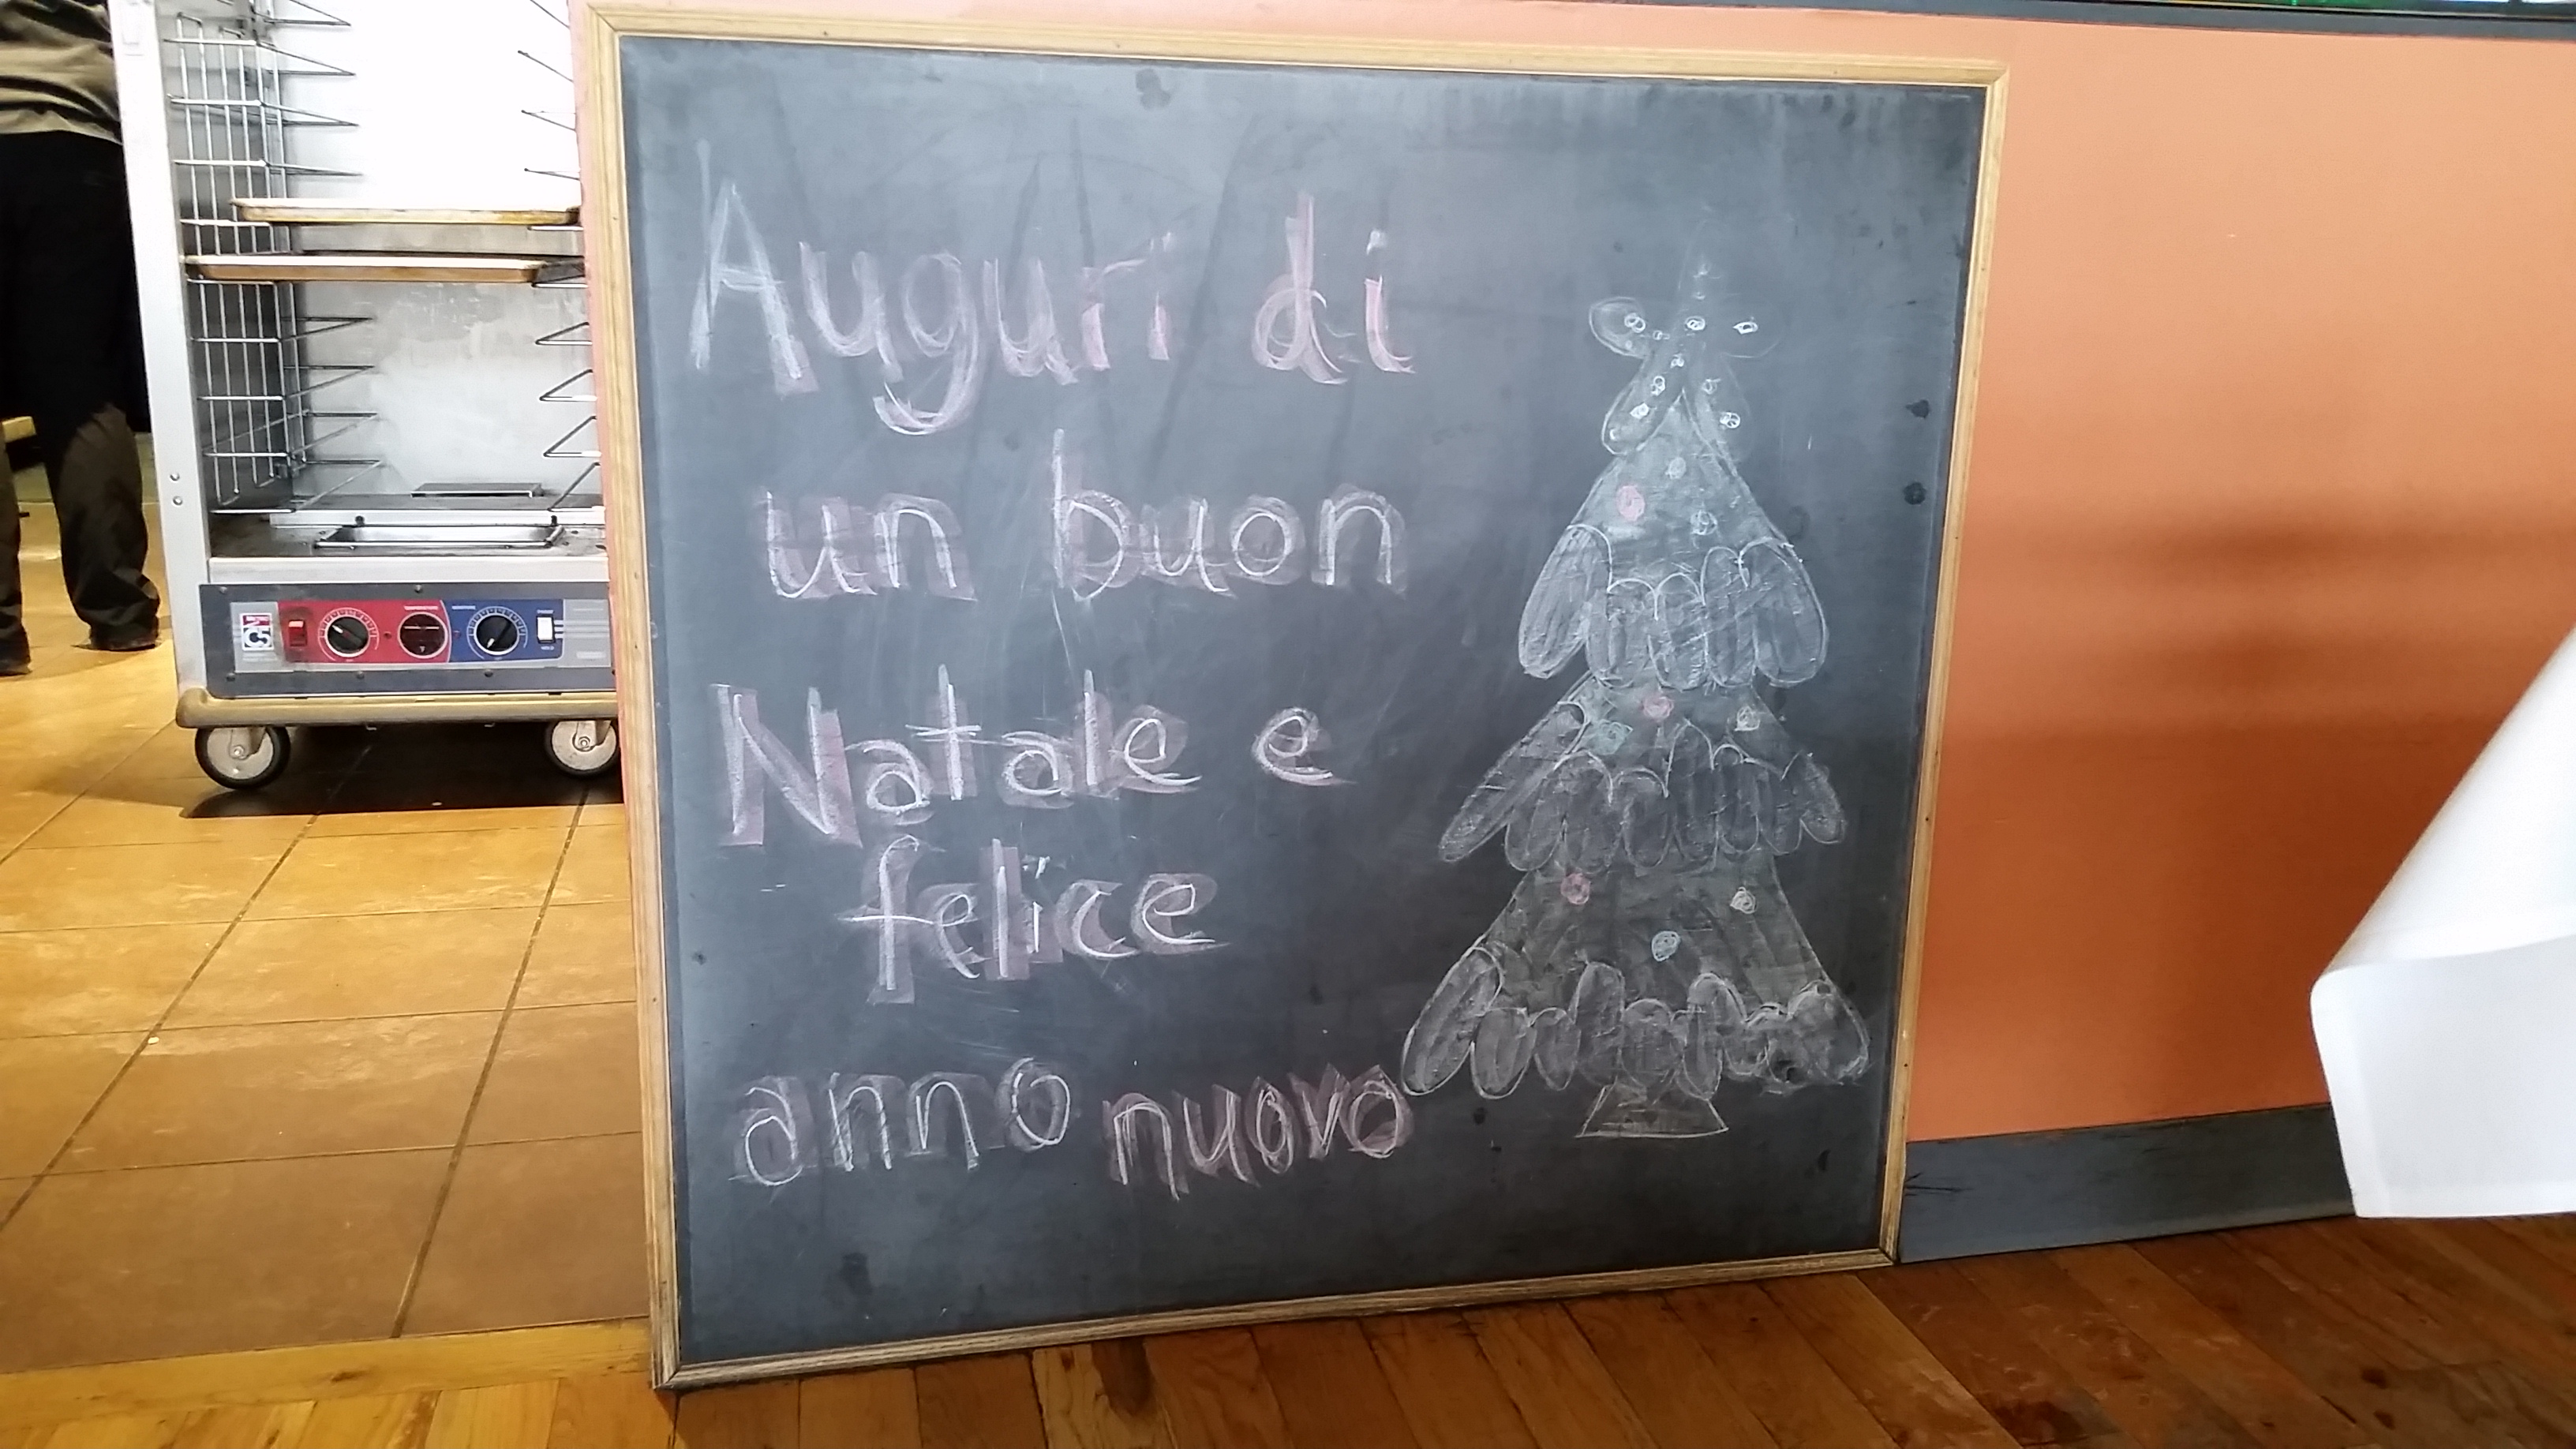 Auguri di
un buon
Natale e
felice
anno nuovo